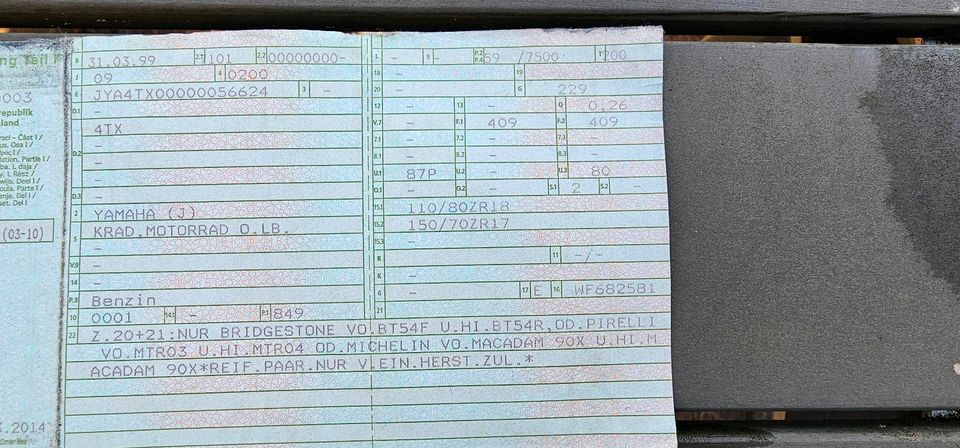 ng Teil I
0003
republik
land
B 31.03.99 2.1 101 2.2 00000000- L - 9 - P.2 P.4 59 /7500 T 200
J 09 4 0200 18 - 19 -
E JYA4TX00000056624 3 - 20 - G 229
D.1 - 12 - 13 - Q 0,26
4TX V.7 - F.1 409 F.2 409
D.2 - 7.1 - 7.2 - 7.3 -
- 8.1 - 8.2 - 8.3 -
- U.1 87P U.2 - U.3 80
D.3 - O.1 - O.2 - S.1 2 S.2 -
2 YAMAHA (J) 15.1 110/80ZR18
5 KRAD,MOTORRAD O.LB. 15.2 150/70ZR17
- 15.3 -
V.9 - R - 11 -/-
14 - K -
P.3 Benzin 6 - 17 E 16 WF682581
10 0001 14.1 - P.1 849 21 -
22 Z.20+21:NUR BRIDGESTONE VO.BT54F U.HI.BT54R,OD.PIRELLI
VO.MTR03 U.HI.MTR04 OD.MICHELIN VO.MACADAM 90X U.HI.M
ACADAM 90X*REIF.PAAR.NUR V.EIN.HERST.ZUL.*
(03-10)
.2014